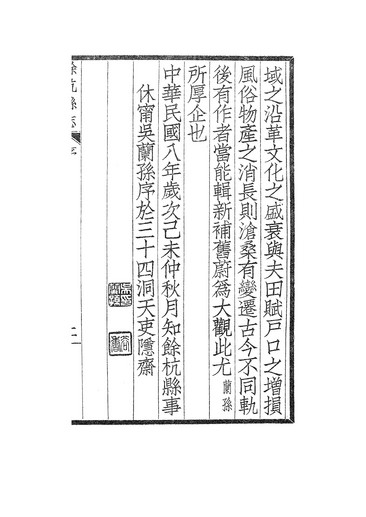 域之沿革文化之盛衰與夫田賦戸口之增損
風俗物產之消長則滄桑有變遷古今不同軌
後有作者當能輯新補舊蔚爲大觀此尤蘭孫
所厚企也
中華民國八年歲次己未仲秋月知餘杭縣事
休甯吳蘭孫序於三十四洞天吏隱齋
餘杭縣志
序
二